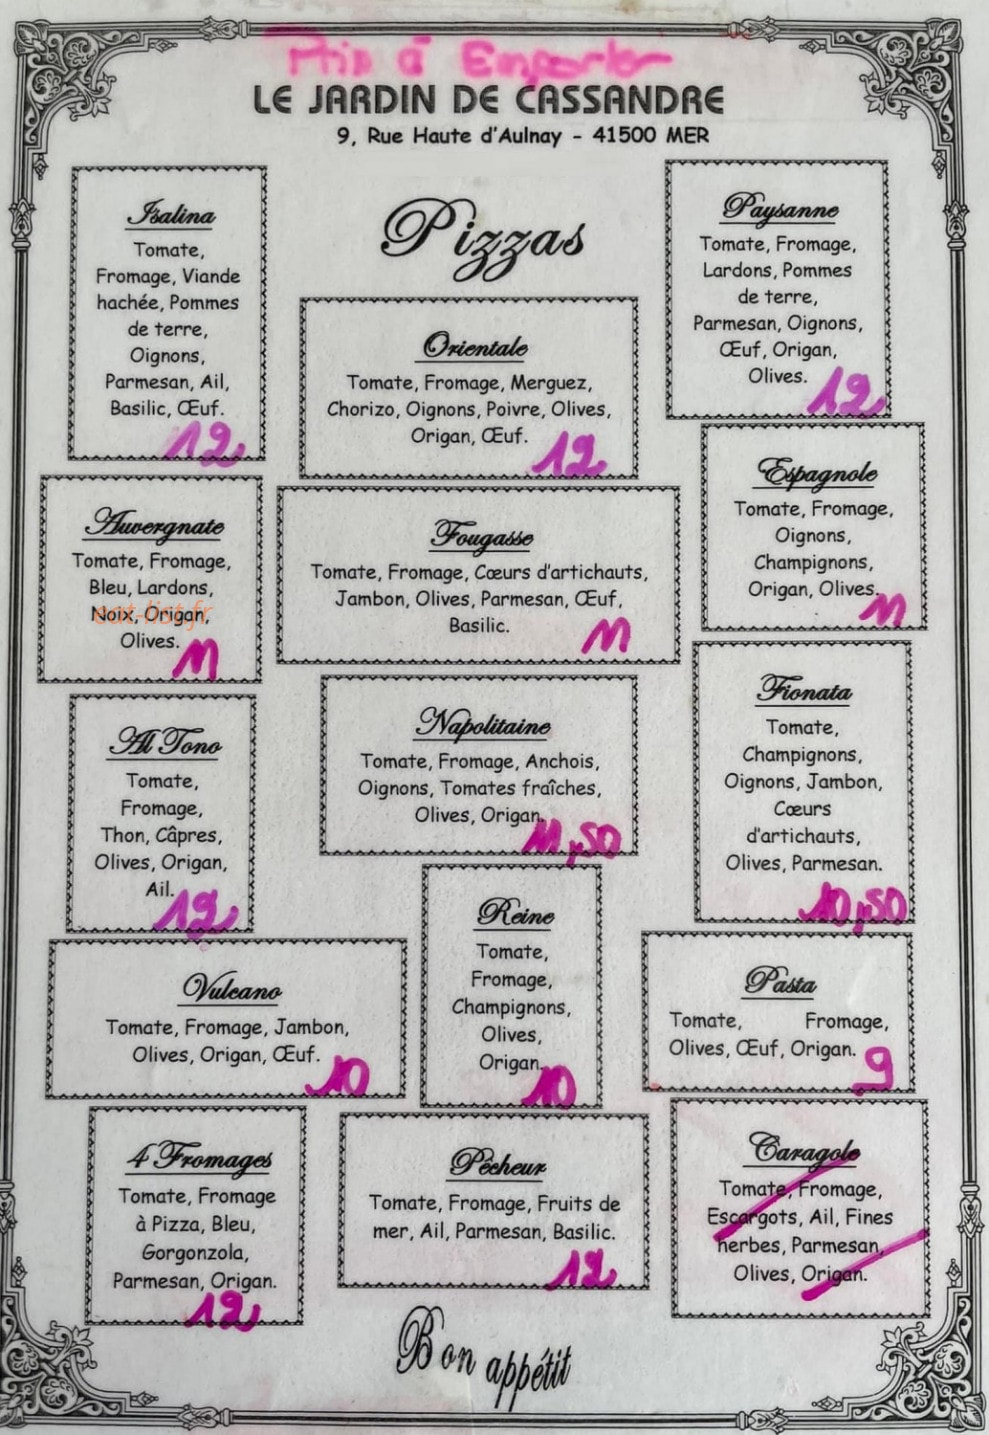 Prix à Emporter
LE JARDIN DE CASSANDRE
9, Rue Haute d'Aulnay - 41500 MER
Pizzas
Isalina
Tomate,
Fromage, Viande
hachée, Pommes
de terre,
Oignons,
Parmesan, Ail,
Basilic, Œuf.
12
Orientale
Tomate, Fromage, Merguez,
Chorizo, Oignons, Poivre, Olives,
Origan, Œuf.
12
Paysanne
Tomate, Fromage,
Lardons, Pommes
de terre,
Parmesan, Oignons,
Œuf, Origan,
Olives.
12
Auvergnate
Tomate, Fromage,
Bleu, Lardons,
Noix, Origan,
eat-list.fr
Olives.
11
Fougasse
Tomate, Fromage, Cœurs d'artichauts,
Jambon, Olives, Parmesan, Œuf,
Basilic.
11
Espagnole
Tomate, Fromage,
Oignons,
Champignons,
Origan, Olives.
11
Al Tono
Tomate,
Fromage,
Thon, Câpres,
Olives, Origan,
Ail.
12
Napolitaine
Tomate, Fromage, Anchois,
Oignons, Tomates fraîches,
Olives, Origan.
11,50
Fionata
Tomate,
Champignons,
Oignons, Jambon,
Cœurs
d'artichauts,
Olives, Parmesan.
10,50
Vulcano
Tomate, Fromage, Jambon,
Olives, Origan, Œuf.
10
Reine
Tomate,
Fromage,
Champignons,
Olives,
Origan.
10
Pasta
Tomate, Fromage,
Olives, Œuf, Origan.
9
4 Fromages
Tomate, Fromage
à Pizza, Bleu,
Gorgonzola,
Parmesan, Origan.
12
Pêcheur
Tomate, Fromage, Fruits de
mer, Ail, Parmesan, Basilic.
12
Caragole
Tomate, Fromage,
Escargots, Ail, Fines
herbes, Parmesan,
Olives, Origan.
Bon appétit